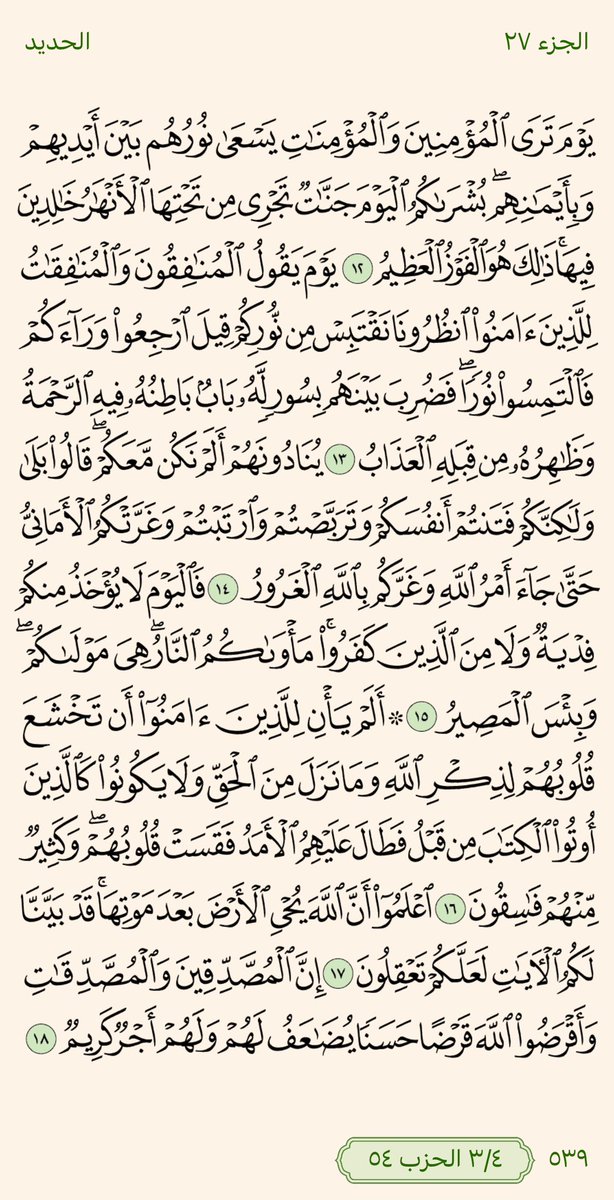 الجزء ٢٧
الحديد
يَوْمَ تَرَى ٱلْمُؤْمِنِينَ وَٱلْمُؤْمِنَٰتِ يَسْعَىٰ نُورُهُم بَيْنَ أَيْدِيهِمْ
وَبِأَيْمَٰنِهِمۖ بُشْرَىٰكُمُ ٱلْيَوْمَ جَنَّٰتٌ تَجْرِى مِن تَحْتِهَا ٱلْأَنْهَٰرُ خَٰلِدِينَ
فِيهَاۚ ذَٰلِكَ هُوَ ٱلْفَوْزُ ٱلْعَظِيمُ ١٢ يَوْمَ يَقُولُ ٱلْمُنَٰفِقُونَ وَٱلْمُنَٰفِقَٰتُ
لِلَّذِينَ ءَامَنُوا۟ ٱنظُرُونَا نَقْتَبِسْ مِن نُّورِكُمْ قِيلَ ٱرْجِعُوا۟ وَرَآءَكُمْ
فَٱلْتَمِسُوا۟ نُورًاۖ فَضُرِبَ بَيْنَهُم بِسُورٍ لَّهُۥ بَابٌۢ بَاطِنُهُۥ فِيهِ ٱلرَّحْمَةُ
وَظَٰهِرُهُۥ مِن قِبَلِهِ ٱلْعَذَابُ ١٣ يُنَادُونَهُمْ أَلَمْ نَكُن مَّعَكُمْۖ قَالُوا۟ بَلَىٰ
وَلَٰكِنَّكُمْ فَتَنتُمْ أَنفُسَكُمْ وَتَرَبَّصْتُمْ وَٱرْتَبْتُمْ وَغَرَّتْكُمُ ٱلْأَمَانِىُّ
حَتَّىٰ جَآءَ أَمْرُ ٱللَّهِ وَغَرَّكُم بِٱللَّهِ ٱلْغَرُورُ ١٤ فَٱلْيَوْمَ لَا يُؤْخَذُ مِنكُمْ
فِدْيَةٌ وَلَا مِنَ ٱلَّذِينَ كَفَرُوا۟ۚ مَأْوَىٰكُمُ ٱلنَّارُۖ هِىَ مَوْلَىٰكُمْۖ
وَبِئْسَ ٱلْمَصِيرُ ١٥ ۞ أَلَمْ يَأْنِ لِلَّذِينَ ءَامَنُوٓا۟ أَن تَخْشَعَ
قُلُوبُهُمْ لِذِكْرِ ٱللَّهِ وَمَا نَزَلَ مِنَ ٱلْحَقِّ وَلَا يَكُونُوا۟ كَٱلَّذِينَ
أُوتُوا۟ ٱلْكِتَٰبَ مِن قَبْلُ فَطَالَ عَلَيْهِمُ ٱلْأَمَدُ فَقَسَتْ قُلُوبُهُمْۖ وَكَثِيرٌ
مِّنْهُمْ فَٰسِقُونَ ١٦ ٱعْلَمُوٓا۟ أَنَّ ٱللَّهَ يُحْىِ ٱلْأَرْضَ بَعْدَ مَوْتِهَاۚ قَدْ بَيَّنَّا
لَكُمُ ٱلْءَايَٰتِ لَعَلَّكُمْ تَعْقِلُونَ ١٧ إِنَّ ٱلْمُصَّدِّقِينَ وَٱلْمُصَّدِّقَٰتِ
وَأَقْرَضُوا۟ ٱللَّهَ قَرْضًا حَسَنًا يُضَٰعَفُ لَهُمْ وَلَهُمْ أَجْرٌ كَرِيمٌ ١٨
٥٣٩
٣/٤ الحزب ٥٤